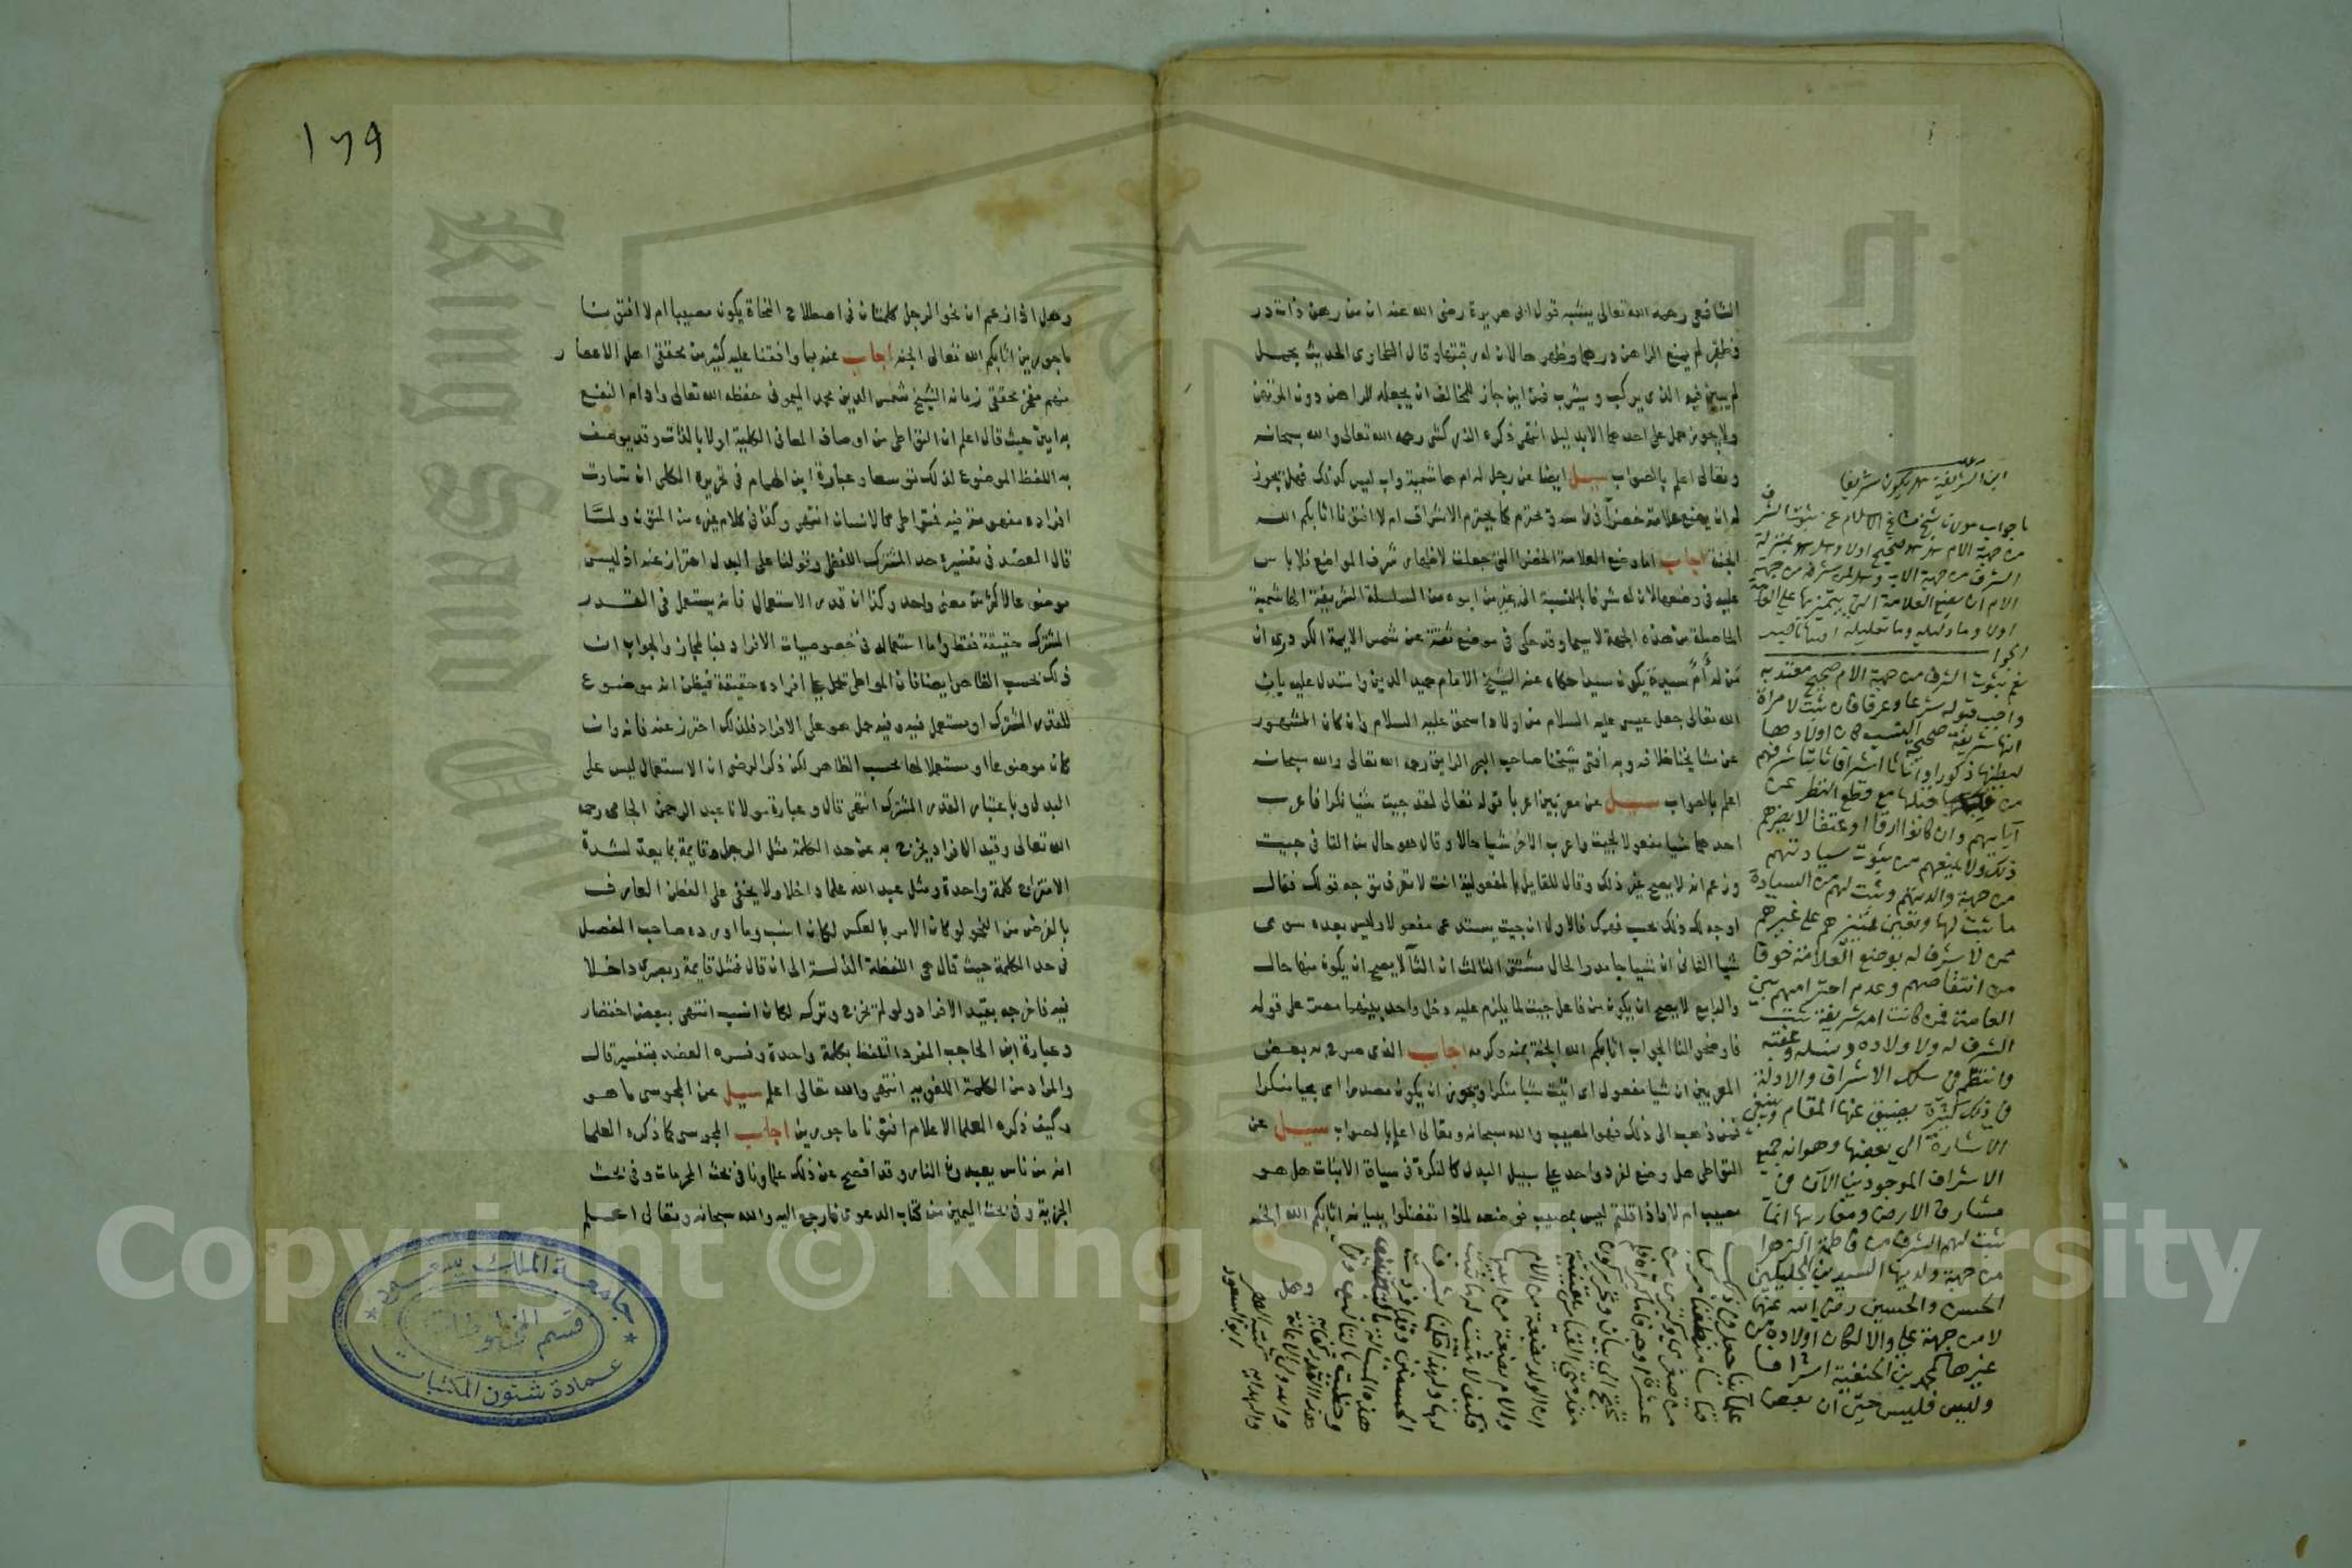 الشافعي رحمه الله تعالى يشبه قول ابى هريرة رضى الله عنه ان من رهن ذات در
وظهر لم يمنع الراهن درهما وظهرها لان له رقبتها وقال الطحاوى الحديث مجمل
لم يبين فيه الذى يركب و يشرب فمن اين جاز للمخالف ان يجعله للراهن دون المرتهن
ولا يجوز حمل على احدهما الا بدليل انتهى ذكره الزركشى رحمه الله تعالى والله سبحانه
وتعالى اعلم بالصواب سيل ايضا عن رجل له ام هاشمية واب ليس كذلك فهل يجوز
له ان يضع علامة خضرا فى راسه و تحترم كما يحترم الاشراف ام لا افتونا اثابكم الله
الجنة اجاب اما وضع العلامة الخضرا التى جعلت لاظهار شرف المواضع فلا باس
عليه فى وضعها لان له شرفا بالنسبة الى غير من ابوه من السلسلة الشريفة الهاشمية
الحاصلة من هذه الجهة لاسيما وقد حكى فى موضع ثقة عن شمس الايمة الكردرى ان
من له أمٌ سيدة يكون سيدا حكاه عنه الشيخ الامام حميد الدين واستدل عليه بان
الله تعالى جعل عيسى عليه السلام من اولاد اسحق عليه السلام وان كان المشهور
عن مشايخنا خلافه وبه افتى شيخنا صاحب البحر الرايق رحمه الله تعالى والله سبحانه
اعلم بالصواب سيل عن معربين اعربا قوله تعالى لقد جيت شيئا نكرا فاعرب
احدهما شيا مفعولا لجيت واعرب الاخر شيا حالا وقال هو حال من التا فى جيت
وزعم انه لا يصح غير ذلك وقال للقايل بالمفعولية انت لا تعرف توجه قولك فقال
اوجه لك ذلك بحسب فهمك فالاول ان جيت يستدعى مفعولا وليس بعده سوى
شيا الثانى ان شيا جامد والحال مشتق الثالث ان التا لا يصح ان يكون منها حال
والرابع لا يصح ان يكون من فاعل جيت لما يلزم عليه دخل واحد بينهما مصر على قوله
فاوضحوا لنا الجواب اثابكم الله الجنة بمنه وكرمه اجاب الذى صرح به بعض
المعربين ان شيا مفعول اى اتيت شيا منكرا ويجوز ان يكون مصدرا اى مجيا منكرا
فمن ذهب الى ذلك فهو المصيب والله سبحانه وتعالى اعلم بالصواب سيل عن
المتواطى هل وضع لفرد واحد على سبيل البدل كالنكرة فى سياق الاثبات هل هو
مصيب ام لا واذا قلتم ليس بمصيب فوضعه لماذا تفضلوا ببيانه اثابكم الله الجنة
ابن الشريفة هل يكون شريفا
ما جواب مولانا شيخ مشايخ الاسلام عن ثبوت الشرف
من جهة الام هل هو صحيح اولا وهل هو بمنزلة
الشرف من جهة الاب وهل لمن شرفه من جهة
الام ان يضع العلامة التى يتميز بها على العامة
اولا وما دليله وما تعليله افتونا
الجواب
نعم ثبوت الشرف من جهة الام صحيح معتد به
واجب قبوله شرعا وعرفا فان ثبت لامراة
انها شريفة صحيحة النسب كان اولادها
لبطنها ذكورا واناثا اشرافا ثابتا شرفهم
من قبلها مع قطع النظر عن
آبايهم وان كانوا ارقا او عتقا لا يضرهم
ذلك ولا يمنعهم من ثبوت سيادتهم
من جهة والدتهم وثبت لهم من السيادة
ما ثبت لها وتعين تمييزهم على غيرهم
ممن لا شرف له بوضع العلامة خوفا
من انتقاصهم وعدم احترامهم بين
العامة فمن كانت امه شريفة ثبت
الشرف له ولاولاده ونسله وعقبه
وانتظم فى سلك الاشراف والادلة
فى ذلك كثيرة يضيق عنها المقام وينبغى
الاشارة الى بعضها وهو ان جميع
الاشراف الموجودين الآن فى
مشارق الارض ومغاربها انما
ثبت لهم الشرف من فاطمة الزهرا
من جهة ولديها السيدين الجليلين
الحسن والحسين رضى الله عنهما
لا من جهة على والا لكان اولاده من
غيرها كمحمد بن الحنفية اشرافا
وليس فليس حتى ان بعض
١٧٩
وهل اذا زعم ان نحو الرجل كلمتان فى اصطلاح النحاة يكون مصيبا ام لا افتونا
ماجورين اثابكم الله تعالى الجنة اجاب عنه بما وافقنا عليه كثير من محققى اهل الاعصار
منهم مفخر محققى زمانه الشيخ شمس الدين محمد اليمونى حفظه الله تعالى وادام النفع
به امين حيث قال اعلم ان التواطى من اوصاف المعانى الكلية اولا بالذات وقد يوصف
به اللفظ الموضوع لذلك توسعا وعبارة ابن الهمام فى تحريره الكلى ان تساوت
افراده مفهومه فيه فمتواطى كالانسان انتهى وكذا فى كلام غيره من المتون ولما
قال العضد فى تفسيره حد المشترك اللفظى وقولنا على البدل احتراز عنه اذ ليس
موضوعا لاكثر من معنى واحد وكذا ان قدر الاستعمال فانه يستعمل فى القدر
المشترك حقيقة فقط واما استعماله فى خصوصيات الافراد فبالمجاز والجواب ان
ذلك بحسب الظاهر ايضا فان المتواطى يحمل على افراده حقيقة فيظن انه موضوع
للقدر المشترك او مستعمل فيه وفيه حمل هو على الافراد فلذلك احترز عنه فانه وان
كان موضوعا او مستعملا لها بحسب الظاهر لكن ذكر الوضع ان الاستعمال ليس على
البدل وباعتبار القدر المشترك انتهى قال وعبارة مولانا عبد الرحمن الجامى رحمه
الله تعالى وقيد الافراد يخرج به عن حد الكلمة مثل الرجل وقايمة مما يعد لشدة
الامتزاج كلمة واحدة ومثل عبد الله علما داخلا ولا يخفى على الفطن العارف
بالغرض من النحو لو كان الامر بالعكس لكان انسب وما اورده صاحب المفصل
فى حد الكلمة حيث قال هى اللفظة الى ان قال فمثل قايمة وبصرى داخلا
فيه فاخرجه بقيد الافراد ولو لم يخرج وتركه لكان انسب انتهى ببعض اختصار
وعبارة ابن الحاجب المفرد اللفظ بكلمة واحدة وفسره العضد بتفسير قال
والمراد من الكلمة اللغوية انتهى والله تعالى اعلم سيل عن المجوسى ما هو
وكيف ذكره العلما الاعلام افتونا ماجورين اجاب المجوسى كما ذكره العلما
انه من ناس يعبدون النار وقد افصح عن ذلك علماونا فى بحث المحرمات وفى بحث
الجزية وفى بحث اليمين من كتاب الدعوى فارجع اليه والله سبحانه وتعالى اعلم
جامعة الملك سعود
قسم المخطوطات
عمادة شئون المكتبات
Copyright © King Saud University